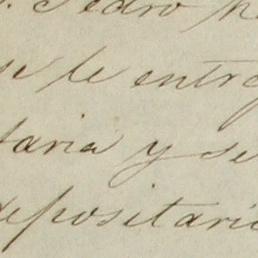 . Pedro
se le entreg
taria y se
depositario